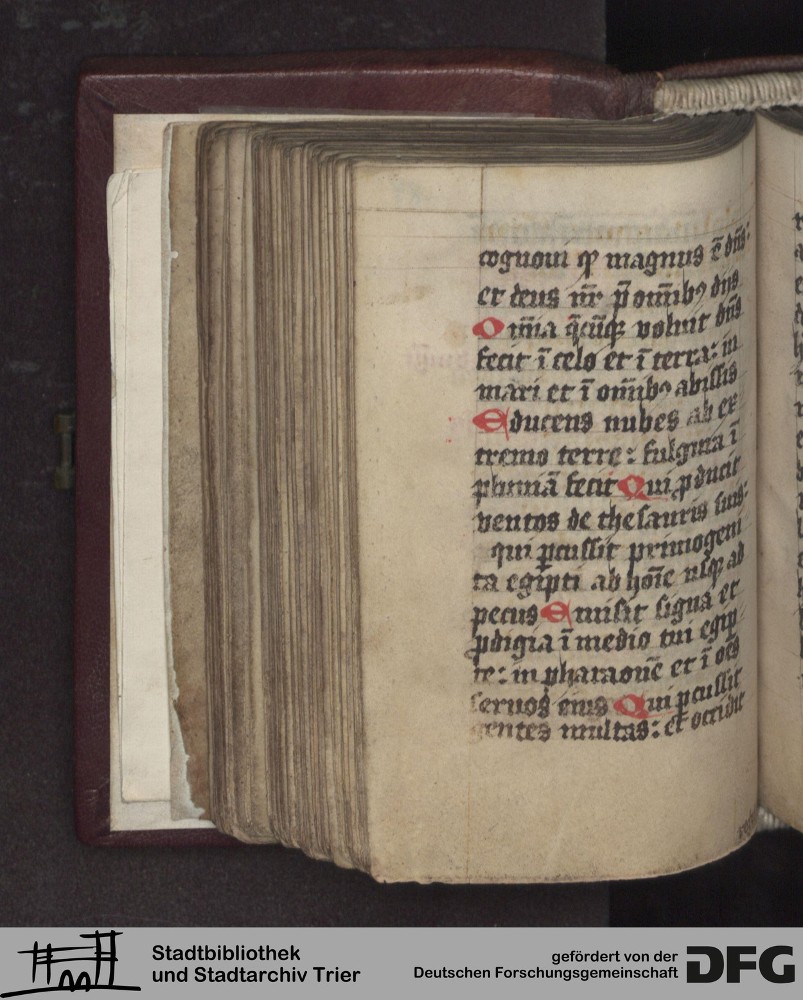 cognoui qꝫ magnus ē dn̄s:
et deus nr̄ p̄ om̄ibꝰ dijs
Om̄ia q̄cūqꝫ voluit dn̄s
fecit ī celo et ī terra: in
mari et ī om̄ibꝰ abissis
Educens nubes ab ex
tremo terre: fulgura ī
pluuiā fecit Qui ꝓducit
ventos de thesauris suis:
qui ꝑcussit primogeni
ta egipti ab hoīe usqꝫ ad
pecus Emisit signa et
ꝓdigia ī medio tui egip
te: in pharaonē et ī oēs
seruos eius Qui ꝑcussit
gentes multas: et occidit
Stadtbibliothek
und Stadtarchiv Trier
gefördert von der
Deutschen Forschungsgemeinschaft
DFG